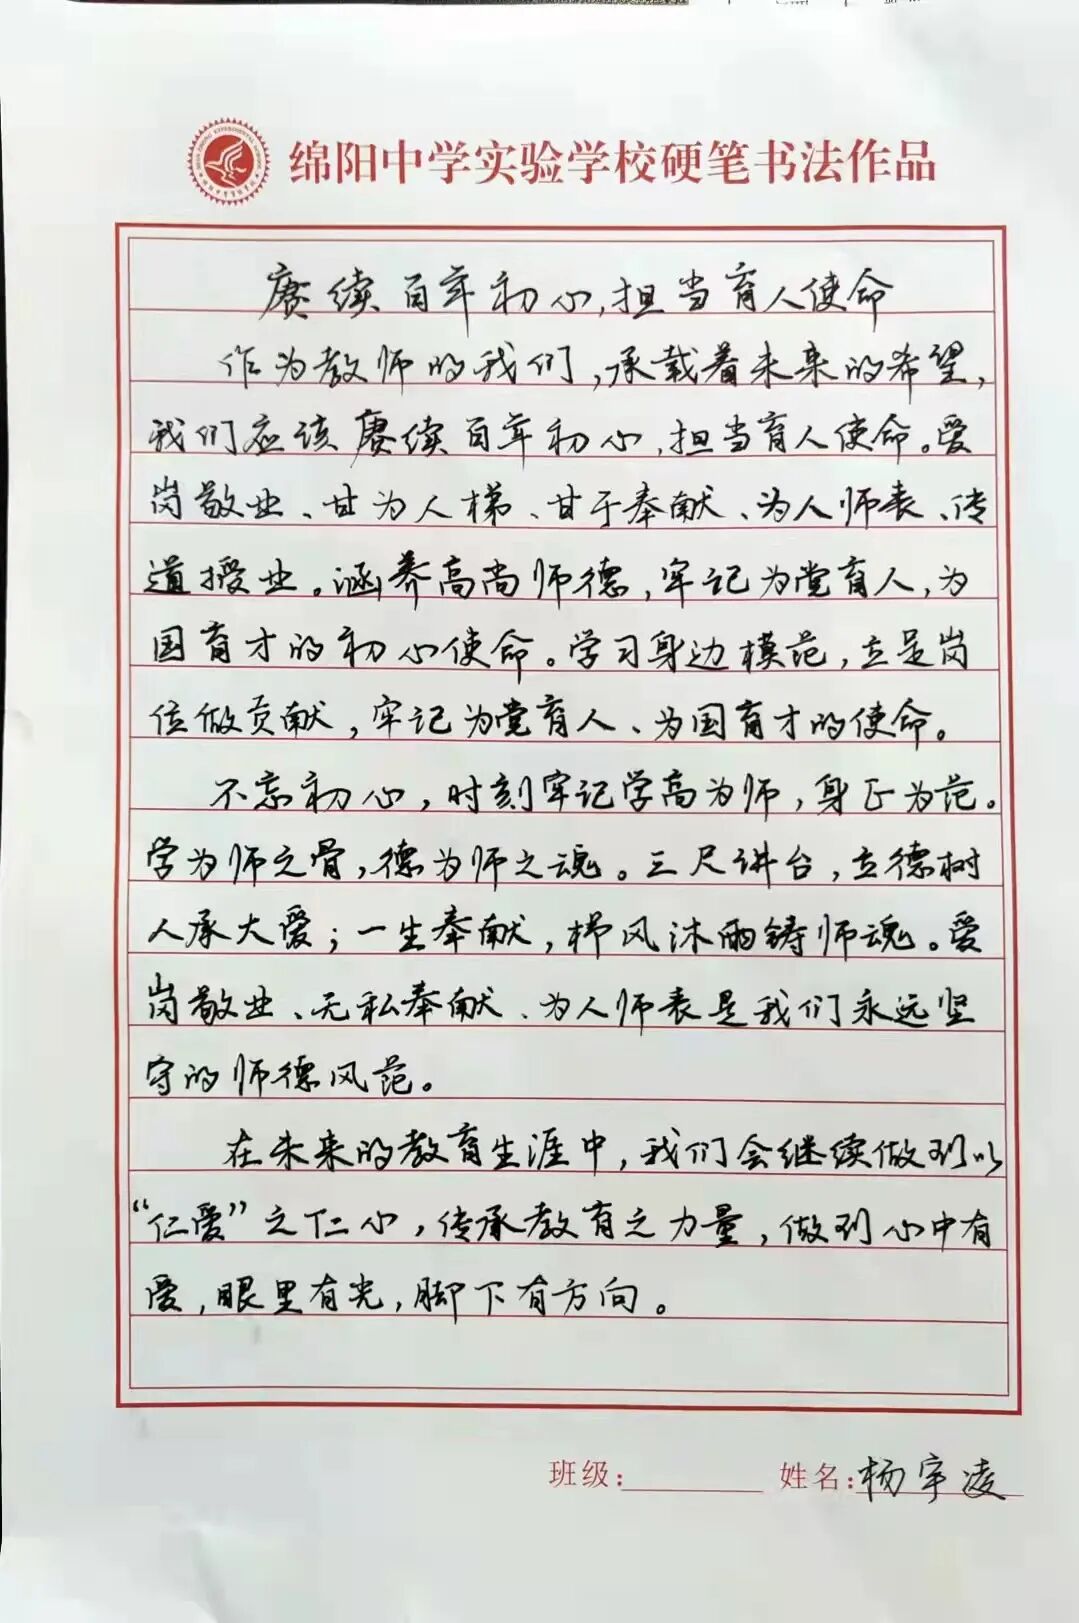 绵阳中学实验学校硬笔书法作品
赓续百年初心,担当育人使命
作为教师的我们,承载着未来的希望,
我们应该赓续百年初心,担当育人使命。爱
岗敬业、甘为人梯、甘于奉献、为人师表、传
道授业。涵养高尚师德,牢记为党育人,为
国育才的初心使命。学习身边模范,立足岗
位做贡献,牢记为党育人、为国育才的使命。
不忘初心,时刻牢记学高为师,身正为范。
学为师之骨,德为师之魂。三尺讲台,立德树
人承大爱;一生奉献,栉风沐雨铸师魂。爱
岗敬业、无私奉献、为人师表是我们永远坚
守的师德风范。
在未来的教育生涯中,我们会继续做到以
“仁爱”之仁心,传承教育之力量,做到心中有
爱,眼里有光,脚下有方向。
班级: 姓名:杨宇凌